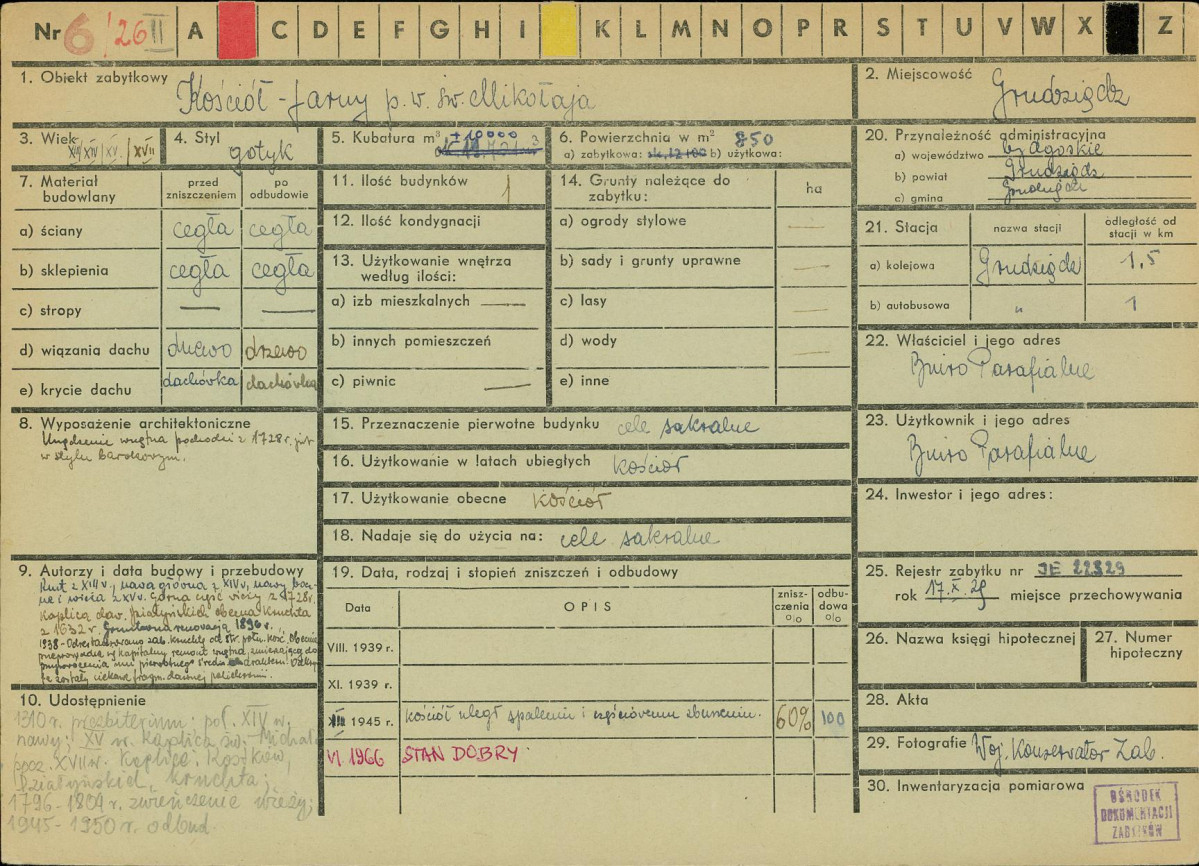 Nr 6/26 II A C D E F G H I K L M N O P R S T U V W X Z
1. Obiekt zabytkowy Kościół - farny p.w. św. Mikołaja
2. Miejscowość Grudziądz
3. Wiek XIII/XIV/XV/XVII
4. Styl gotyk
5. Kubatura m³ +10000
6. Powierzchnia w m² 850
a) zabytkowa: b) użytkowa:
20. Przynależność administracyjna
a) województwo bydgoskie
b) powiat Grudziądz
c) gmina Grudziądz
7. Materiał budowlany
przed zniszczeniem
po odbudowie
a) ściany cegła cegła
b) sklepienia cegła cegła
c) stropy — —
d) wiązania dachu drzewo drzewo
e) krycie dachu dachówka dachówka
11. Ilość budynków 1
12. Ilość kondygnacji
13. Użytkowanie wnętrza
według ilości:
a) izb mieszkalnych —
b) innych pomieszczeń
c) piwnic —
14. Grunty należące do
zabytku:
ha
a) ogrody stylowe —
b) sady i grunty uprawne —
c) lasy —
d) wody —
e) inne
21. Stacja
nazwa stacji
odległość od
stacji w km
a) kolejowa Grudziądz 1,5
b) autobusowa " 1
22. Właściciel i jego adres
Biuro Parafialne
8. Wyposażenie architektoniczne
Urządzenie wnętrza pochodzi z 1728 r. jest
w stylu barokowym.
15. Przeznaczenie pierwotne budynku cele sakralne
16. Użytkowanie w latach ubiegłych kościół
17. Użytkowanie obecne kościół
18. Nadaje się do użycia na: cele sakralne
23. Użytkownik i jego adres
Biuro Parafialne
24. Inwestor i jego adres:
9. Autorzy i data budowy i przebudowy
z XIII w., nawa główna z XIV w, nawy bocz-
ne i wieża z XV w. Górna część wieży z 1728 r.
Kaplica daw. Działyńskich obecna kruchta
z 1632 r. Gruntowna renowacja 1896 r.
1938 - Odrestaurowano zab. kruchtę od str. połn. kośc. Obecnie
przeprowadza się kapitalny remont wnętrza, zmierzający do
przywrócenia mu pierwotnego średn. charakteru. Odkry-
te zostały ciekawe fragm. dawnej polichromii.
19. Data, rodzaj i stopień zniszczeń i odbudowy
Data OPIS znisz-
czenia
% odbu-
dowa
%
VIII. 1939 r.
XI. 1939 r.
1945 r. kościół uległ spaleniu i częściowemu zburzeniu. 60% 100
VI. 1966 STAN DOBRY
25. Rejestr zabytku nr JE 22829
rok 17.X.29 miejsce przechowywania
26. Nazwa księgi hipotecznej
27. Numer
hipoteczny
28. Akta
29. Fotografie Woj. Konserwator Zab.
30. Inwentaryzacja pomiarowa
10. Udostępnienie
1310 r. prezbiterium; poł. XIV w.
nawy; XV w. kaplica św. Michała
pocz. XVII w. Kaplice: Kostków,
Działyńskich, kruchta;
1796-1804 r. zwieńczenie wieży;
1945-1950 r. odbud.
OŚRODEK
DOKUMENTACJI
ZABYTKÓW